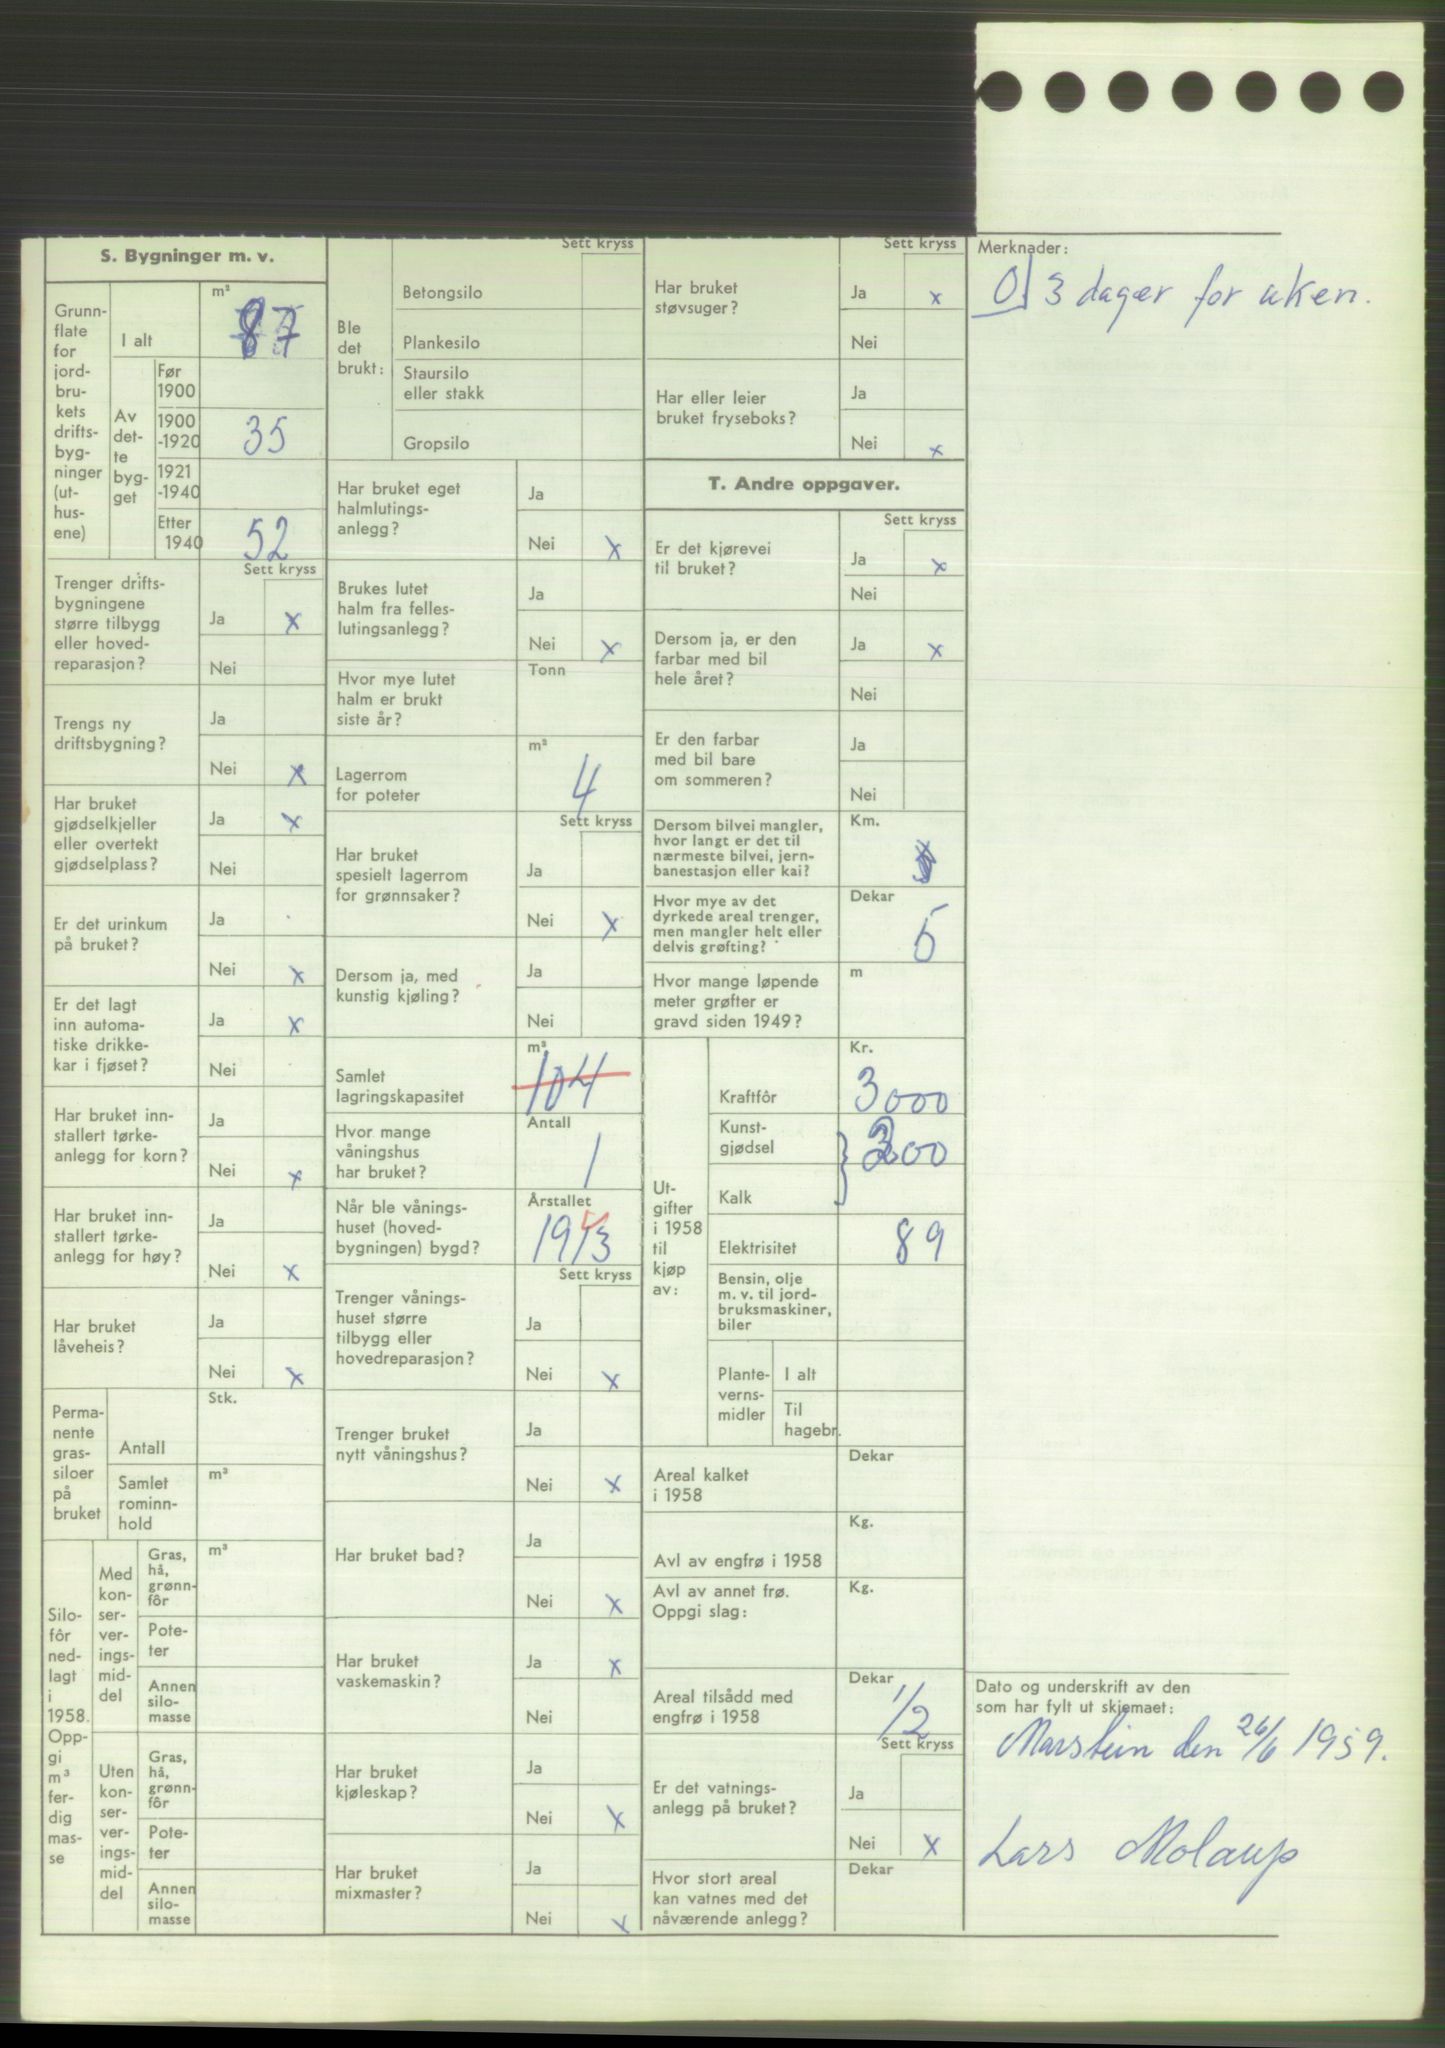 S. Bygninger m. v.
Grunn-
flate
for
jord-
bru-
kets
drifts-
byg-
ninger
(ut-
hus-
ene)
I alt
m²
87
Av
det-
te
byg-
get
Før
1900
1900
-1920
35
1921
-1940
Etter
1940
52
Sett kryss
Trenger drifts-
bygningene
større tilbygg
eller hoved-
reparasjon?
Ja x
Nei
Trengs ny
driftsbygning?
Ja
Nei x
Har bruket
gjødselkjeller
eller overtekt
gjødselplass?
Ja x
Nei
Er det urinkum
på bruket?
Ja
Nei x
Er det lagt
inn automa-
tiske drikke-
kar i fjøset?
Ja x
Nei
Har bruket inn-
stallert tørke-
anlegg for korn?
Ja
Nei x
Har bruket inn-
stallert tørke-
anlegg for høy?
Ja
Nei x
Har bruket
låveheis?
Ja
Nei x
Perma-
nente
gras-
siloer
på
bruket
Antall
Stk.
Samlet
rominn-
hold
m³
Silo-
fôr
ned-
lagt
i
1958.
Opp-
gi
m³
fer-
dig
mas-
se
Med
kon-
ser-
ver-
ings-
mid-
del
Gras,
hå,
grønn-
fôr
m³
Pote-
ter
Annen
silo-
masse
Uten
kon-
ser-
ver-
ings-
mid-
del
Gras,
hå,
grønn-
fôr
Pote-
ter
Annen
silo-
masse
Sett kryss
Ble
det
brukt:
Betongsilo
Plankesilo
Staursilo
eller stakk
Gropsilo
Har bruket eget
halmlutings-
anlegg?
Ja
Nei x
Brukes lutet
halm fra felles-
lutingsanlegg?
Ja
Nei x
Hvor mye lutet
halm er brukt
siste år?
Tonn
Lagerrom
for poteter
m³
4
Sett kryss
Har bruket
spesielt lagerrom
for grønnsaker?
Ja
Nei x
Dersom ja, med
kunstig kjøling?
Ja
Nei
Samlet
lagringskapasitet
m³
104
Hvor mange
våningshus
har bruket?
Antall
1
Når ble vånings-
huset (hoved-
bygningen) bygd?
Årstallet
Sett kryss
Trenger vånings-
huset større
tilbygg eller
hovedreparasjon?
Ja
Nei x
Trenger bruket
nytt våningshus?
Ja
Nei x
Har bruket bad?
Ja
Nei x
Har bruket
vaskemaskin?
Ja x
Nei
Har bruket
kjøleskap?
Ja
Nei x
Har bruket
mixmaster?
Ja
Nei x
Sett kryss
Har bruket
støvsuger?
Ja x
Nei
Har eller leier
bruket fryseboks?
Ja
Nei x
T. Andre oppgaver.
Sett kryss
Er det kjørevei
til bruket?
Ja x
Nei
Dersom ja, er den
farbar med bil
hele året?
Ja x
Nei
Er den farbar
med bil bare
om sommeren?
Ja
Nei
Dersom bilvei mangler,
hvor langt er det til
nærmeste bilvei, jern-
banestasjon eller kai?
Km.
Hvor mye av det
dyrkede areal trenger,
men mangler helt eller
delvis grøfting?
Dekar
5
Hvor mange løpende
meter grøfter er
gravd siden 1949?
m
Ut-
gifter
i 1958
til
kjøp
av:
Kr.
Kraftfôr
3000
Kunst-
gjødsel
Kalk
Elektrisitet
89
Bensin, olje
m. v. til jord-
bruksmaskiner,
biler
Plante-
verns-
midler
I alt
Til
hagebr.
Areal kalket
i 1958
Dekar
Avl av engfrø i 1958
Kg.
Avl av annet frø.
Oppgi slag:
Kg.
Areal tilsådd med
engfrø i 1958
Dekar
1/2
Sett kryss
Er det vatnings-
anlegg på bruket?
Ja
Nei x
Hvor stort areal
kan vatnes med det
nåværende anlegg?
Dekar
Merknader:
3 dager for uken.
Dato og underskrift av den
som har fylt ut skjemaet:
Marstein den 26/6 1959.
Lars